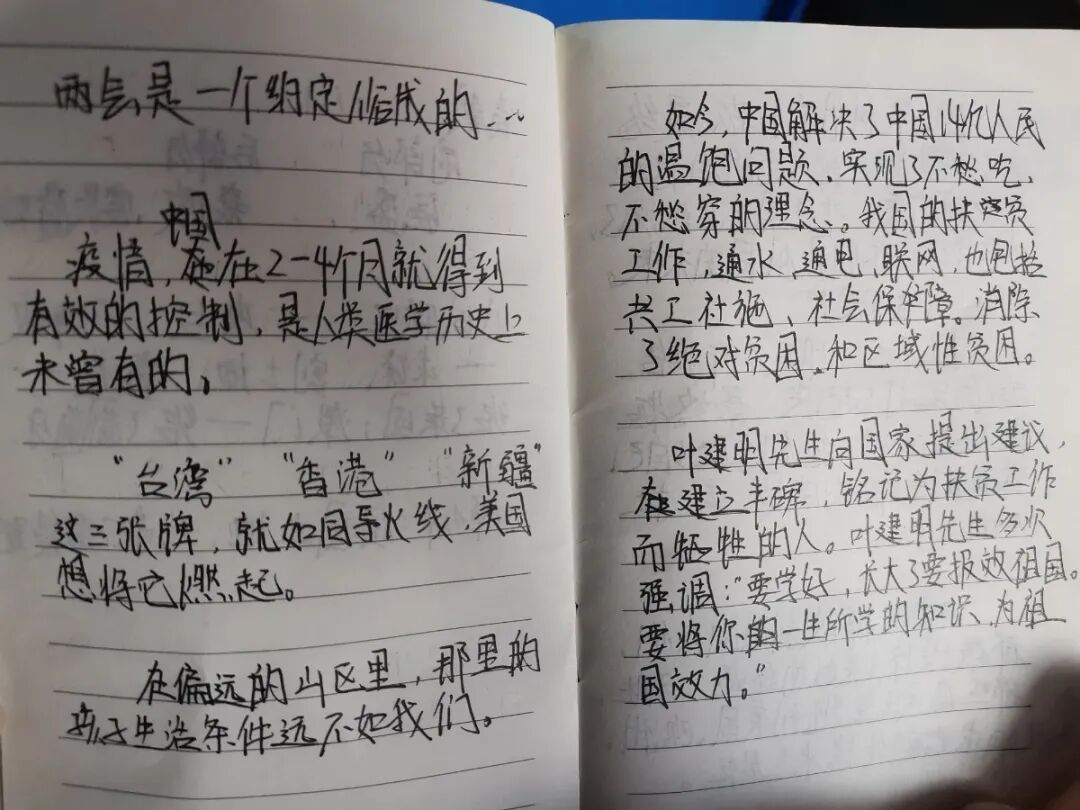 两会,是一个约定俗成的...
中国
疫情,在2-4个月就得到
有效的控制,是人类医学历史上
未曾有的,
"台湾" "香港" "新疆"
这三张牌,就如同导火线,美国
想将它燃起。
在偏远的山区里,那里的
孩子生活条件远不如我们。
如今,中国解决了中国14亿人民
的温饱问题,实现了不愁吃,
不愁穿的理念。我国的扶贫
工作,通水,通电,联网,也包括
共工社施、社会保障。消除
了绝对贫困,和区域性贫困。
叶建明先生向国家提出建议,
在建立丰碑,铭记为扶贫工作
而牺牲的人。叶建明先生多次
强调:"要学好,长大了要报效祖国。
要将你的一生所学的知识,为祖
国效力。"